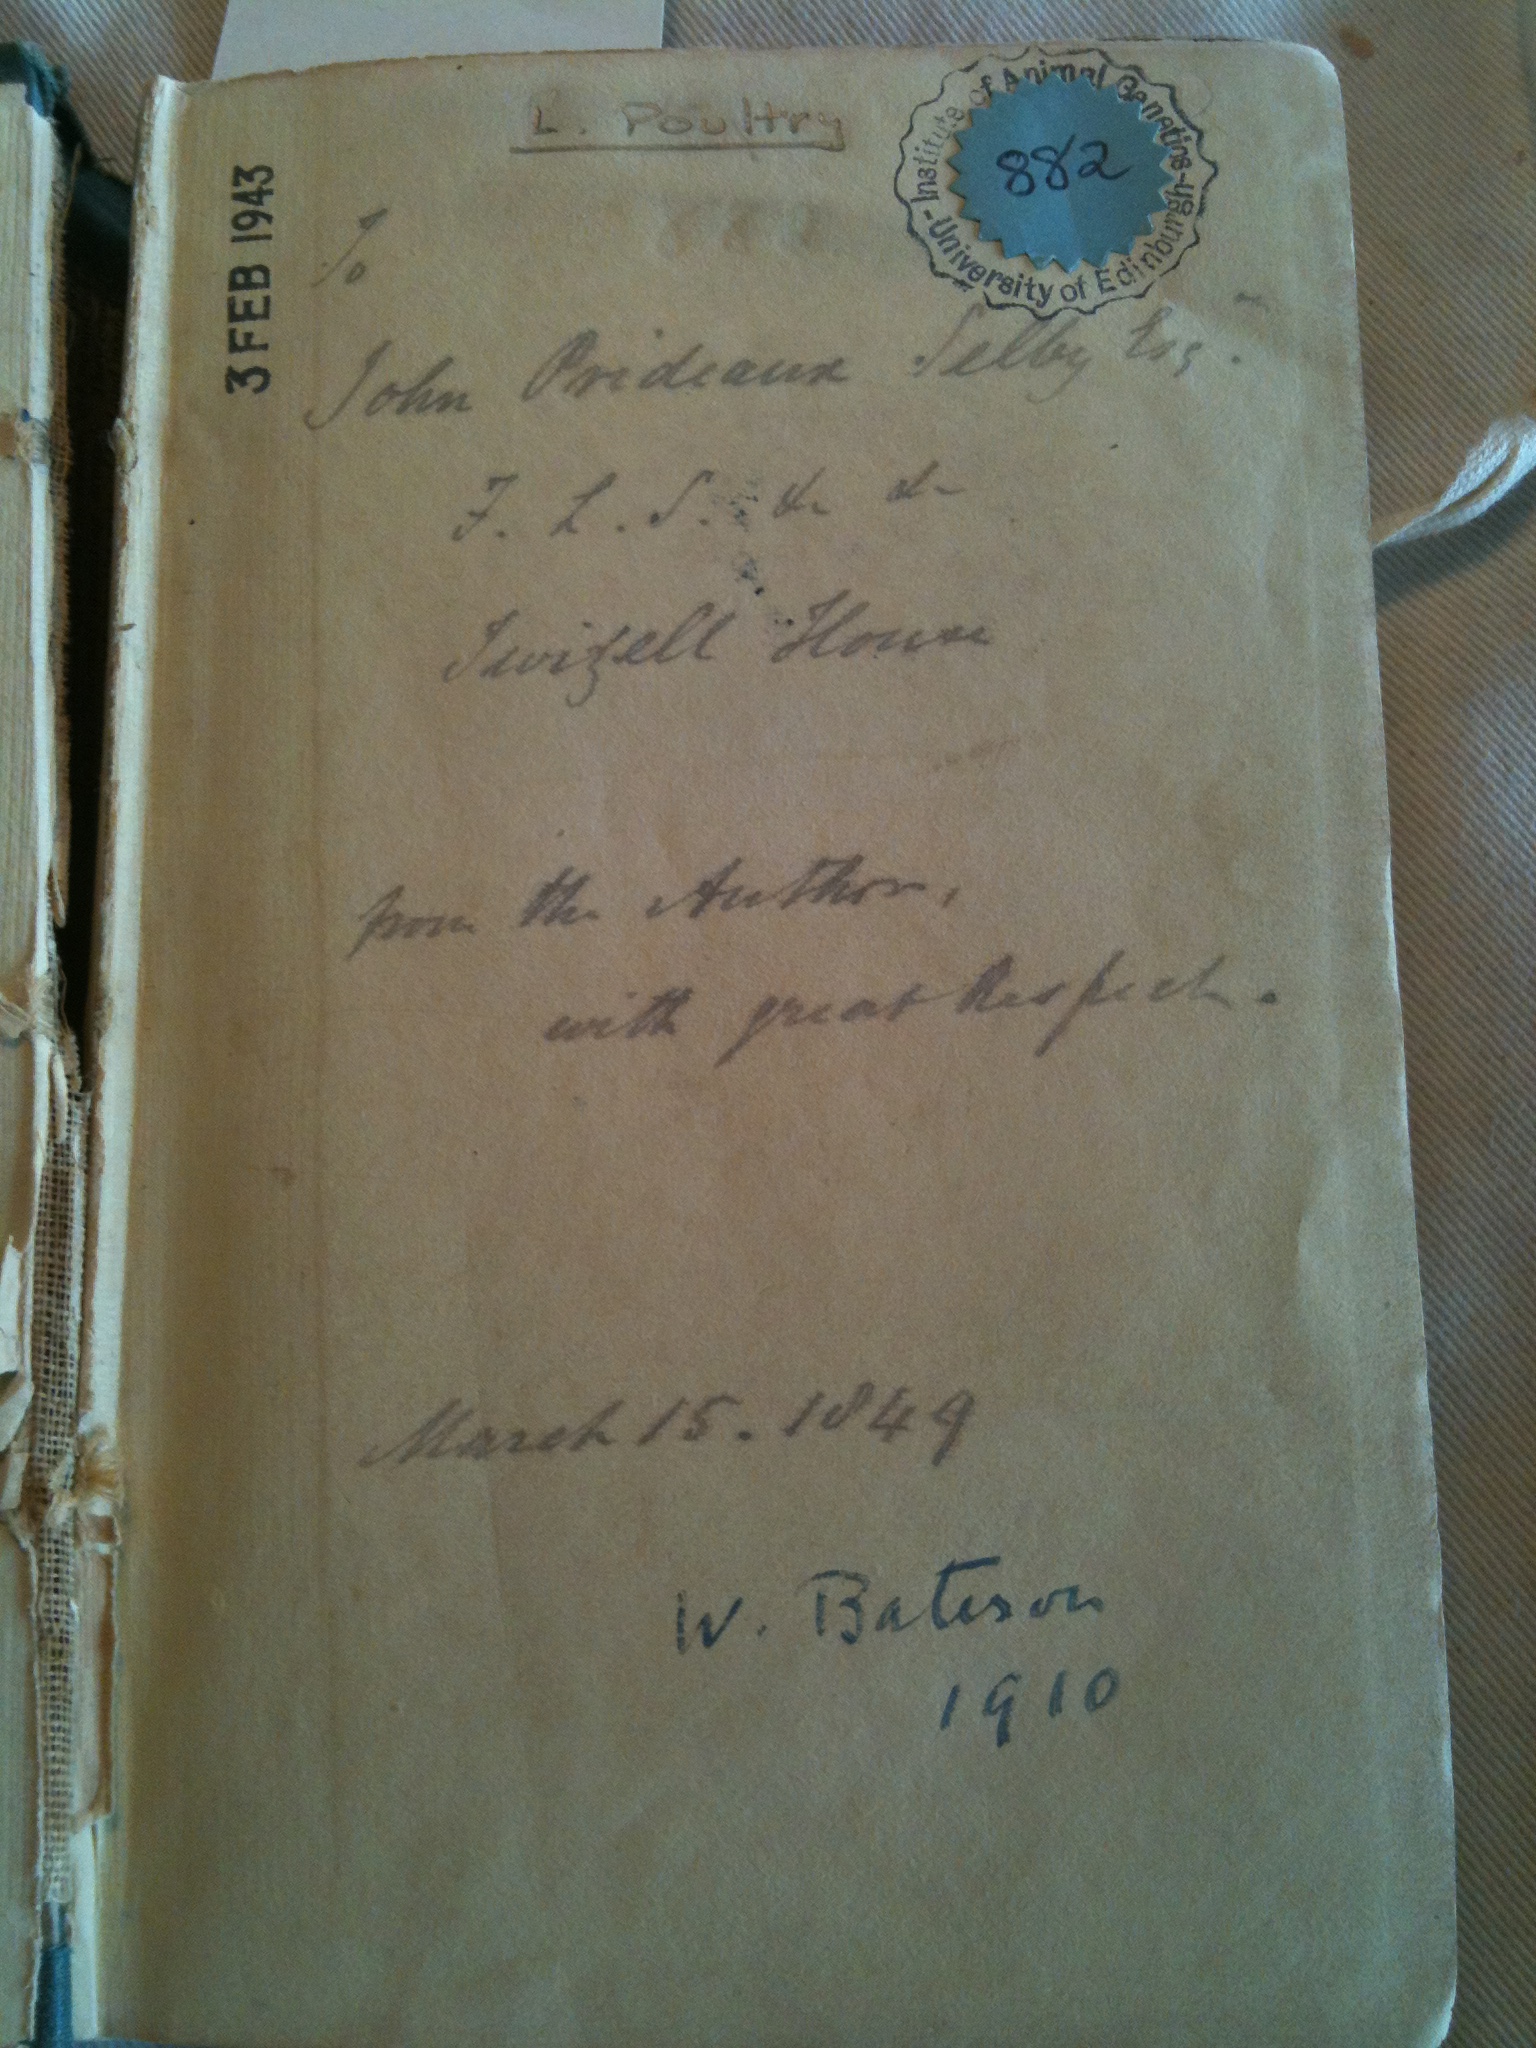 L. Poultry
Institute of Animal Genetics
University of Edinburgh
882
3 FEB 1943
882
To
John Prideaux Selby Esq.
F. L. S. &c &c
Twizell House
from the Author,
with great Respect.
March 15. 1849
W. Bateson
1910